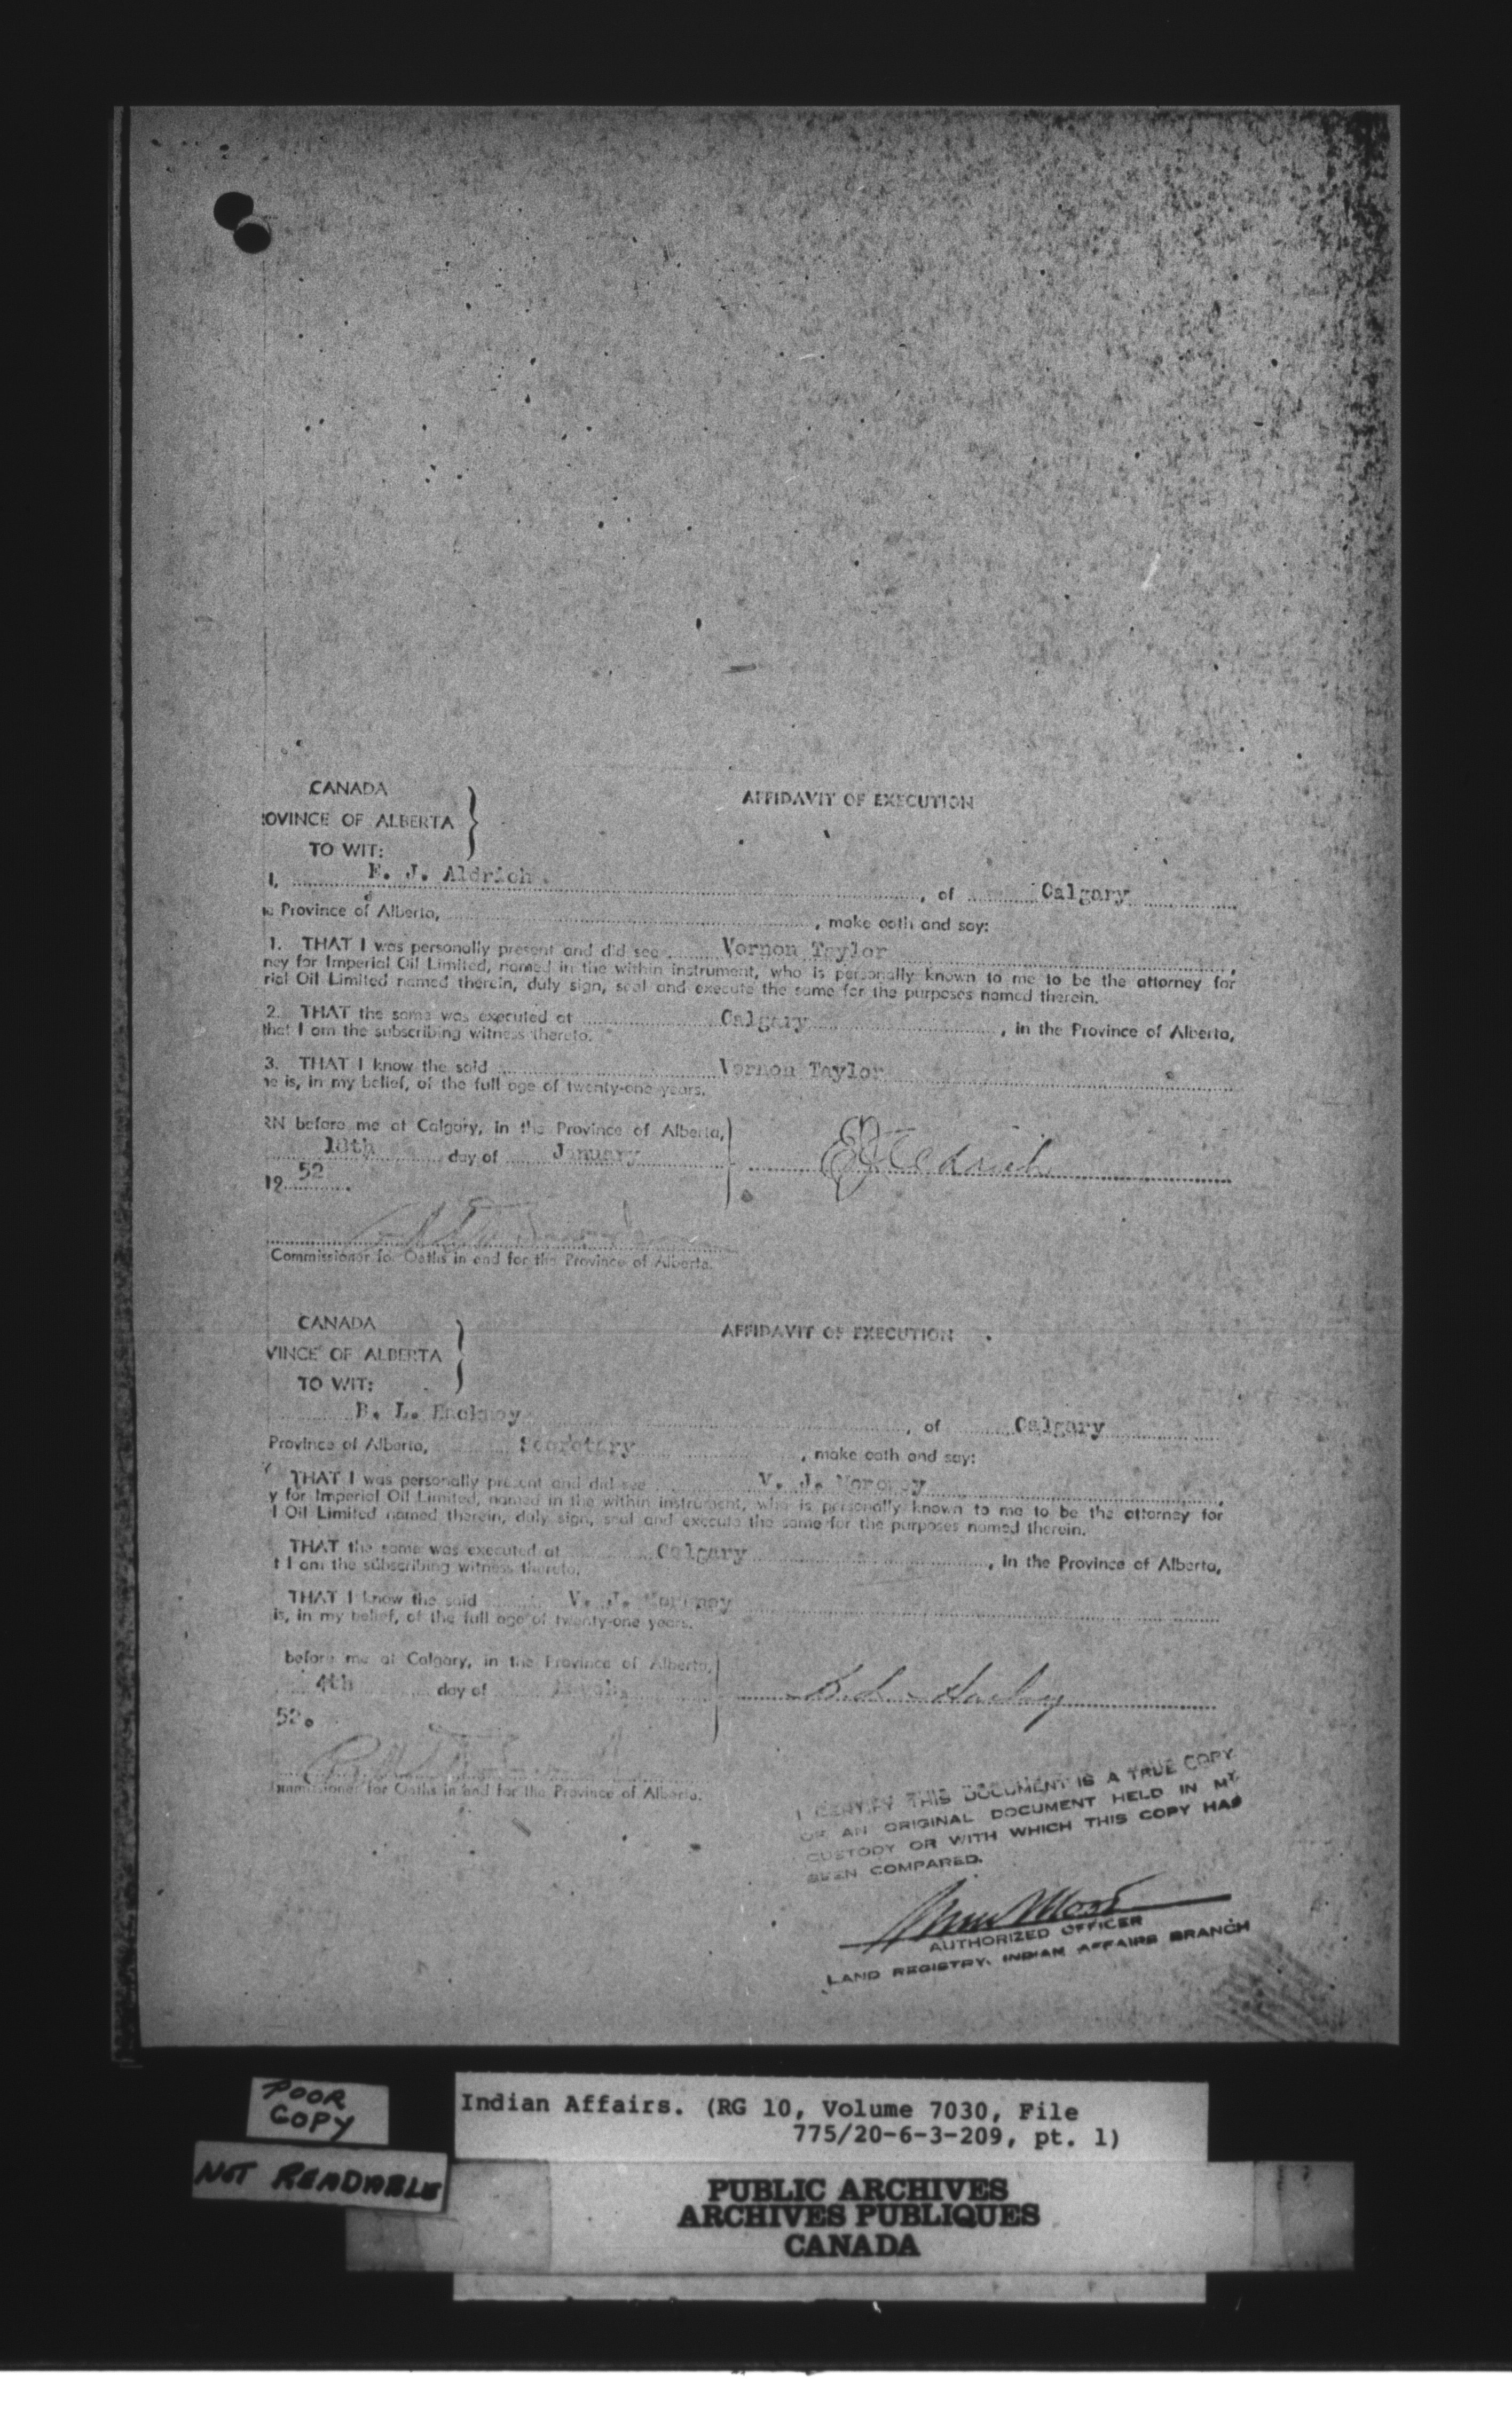 CANADA
AFFIDAVIT OF EXECUTION
ROVINCE OF ALBERTA
TO WIT:
I, E. J. Aldrich, of Calgary
Province of Alberta, , make oath and say:
1. THAT I was personally present and did see Vernon Taylor,
ney for Imperial Oil Limited, named in the within instrument, who is personally known to me to be the attorney for
rial Oil Limited named therein, duly sign, seal and execute the same for the purposes named therein.
2. THAT the same was executed at Calgary, in the Province of Alberta,
that I am the subscribing witness thereto.
3. THAT I know the said Vernon Taylor
he is, in my belief, of the full age of twenty-one years.
RN before me at Calgary, in the Province of Alberta,
18th day of January
19 52.
Commissioner for Oaths in and for the Province of Alberta.
CANADA
AFFIDAVIT OF EXECUTION
VINCE OF ALBERTA
TO WIT:
B. L. , of Calgary
Province of Alberta, Secretary, make oath and say:
THAT I was personally present and did see V. J. ,
y for Imperial Oil Limited, named in the within instrument, who is personally known to me to be the attorney for
l Oil Limited named therein, duly sign, seal and execute the same for the purposes named therein.
THAT the same was executed at Calgary, in the Province of Alberta,
t I am the subscribing witness thereto.
THAT I know the said V. J.
is, in my belief, of the full age of twenty-one years.
before me at Calgary, in the Province of Alberta,
4th day of
52.
Commissioner for Oaths in and for the Province of Alberta.
I CERTIFY THIS DOCUMENT IS A TRUE COPY
OF AN ORIGINAL DOCUMENT HELD IN MY
CUSTODY OR WITH WHICH THIS COPY HAS
BEEN COMPARED.
AUTHORIZED OFFICER
LAND REGISTRY, INDIAN AFFAIRS BRANCH
POOR
COPY
NOT READABLE
Indian Affairs. (RG 10, Volume 7030, File
775/20-6-3-209, pt. 1)
PUBLIC ARCHIVES
ARCHIVES PUBLIQUES
CANADA